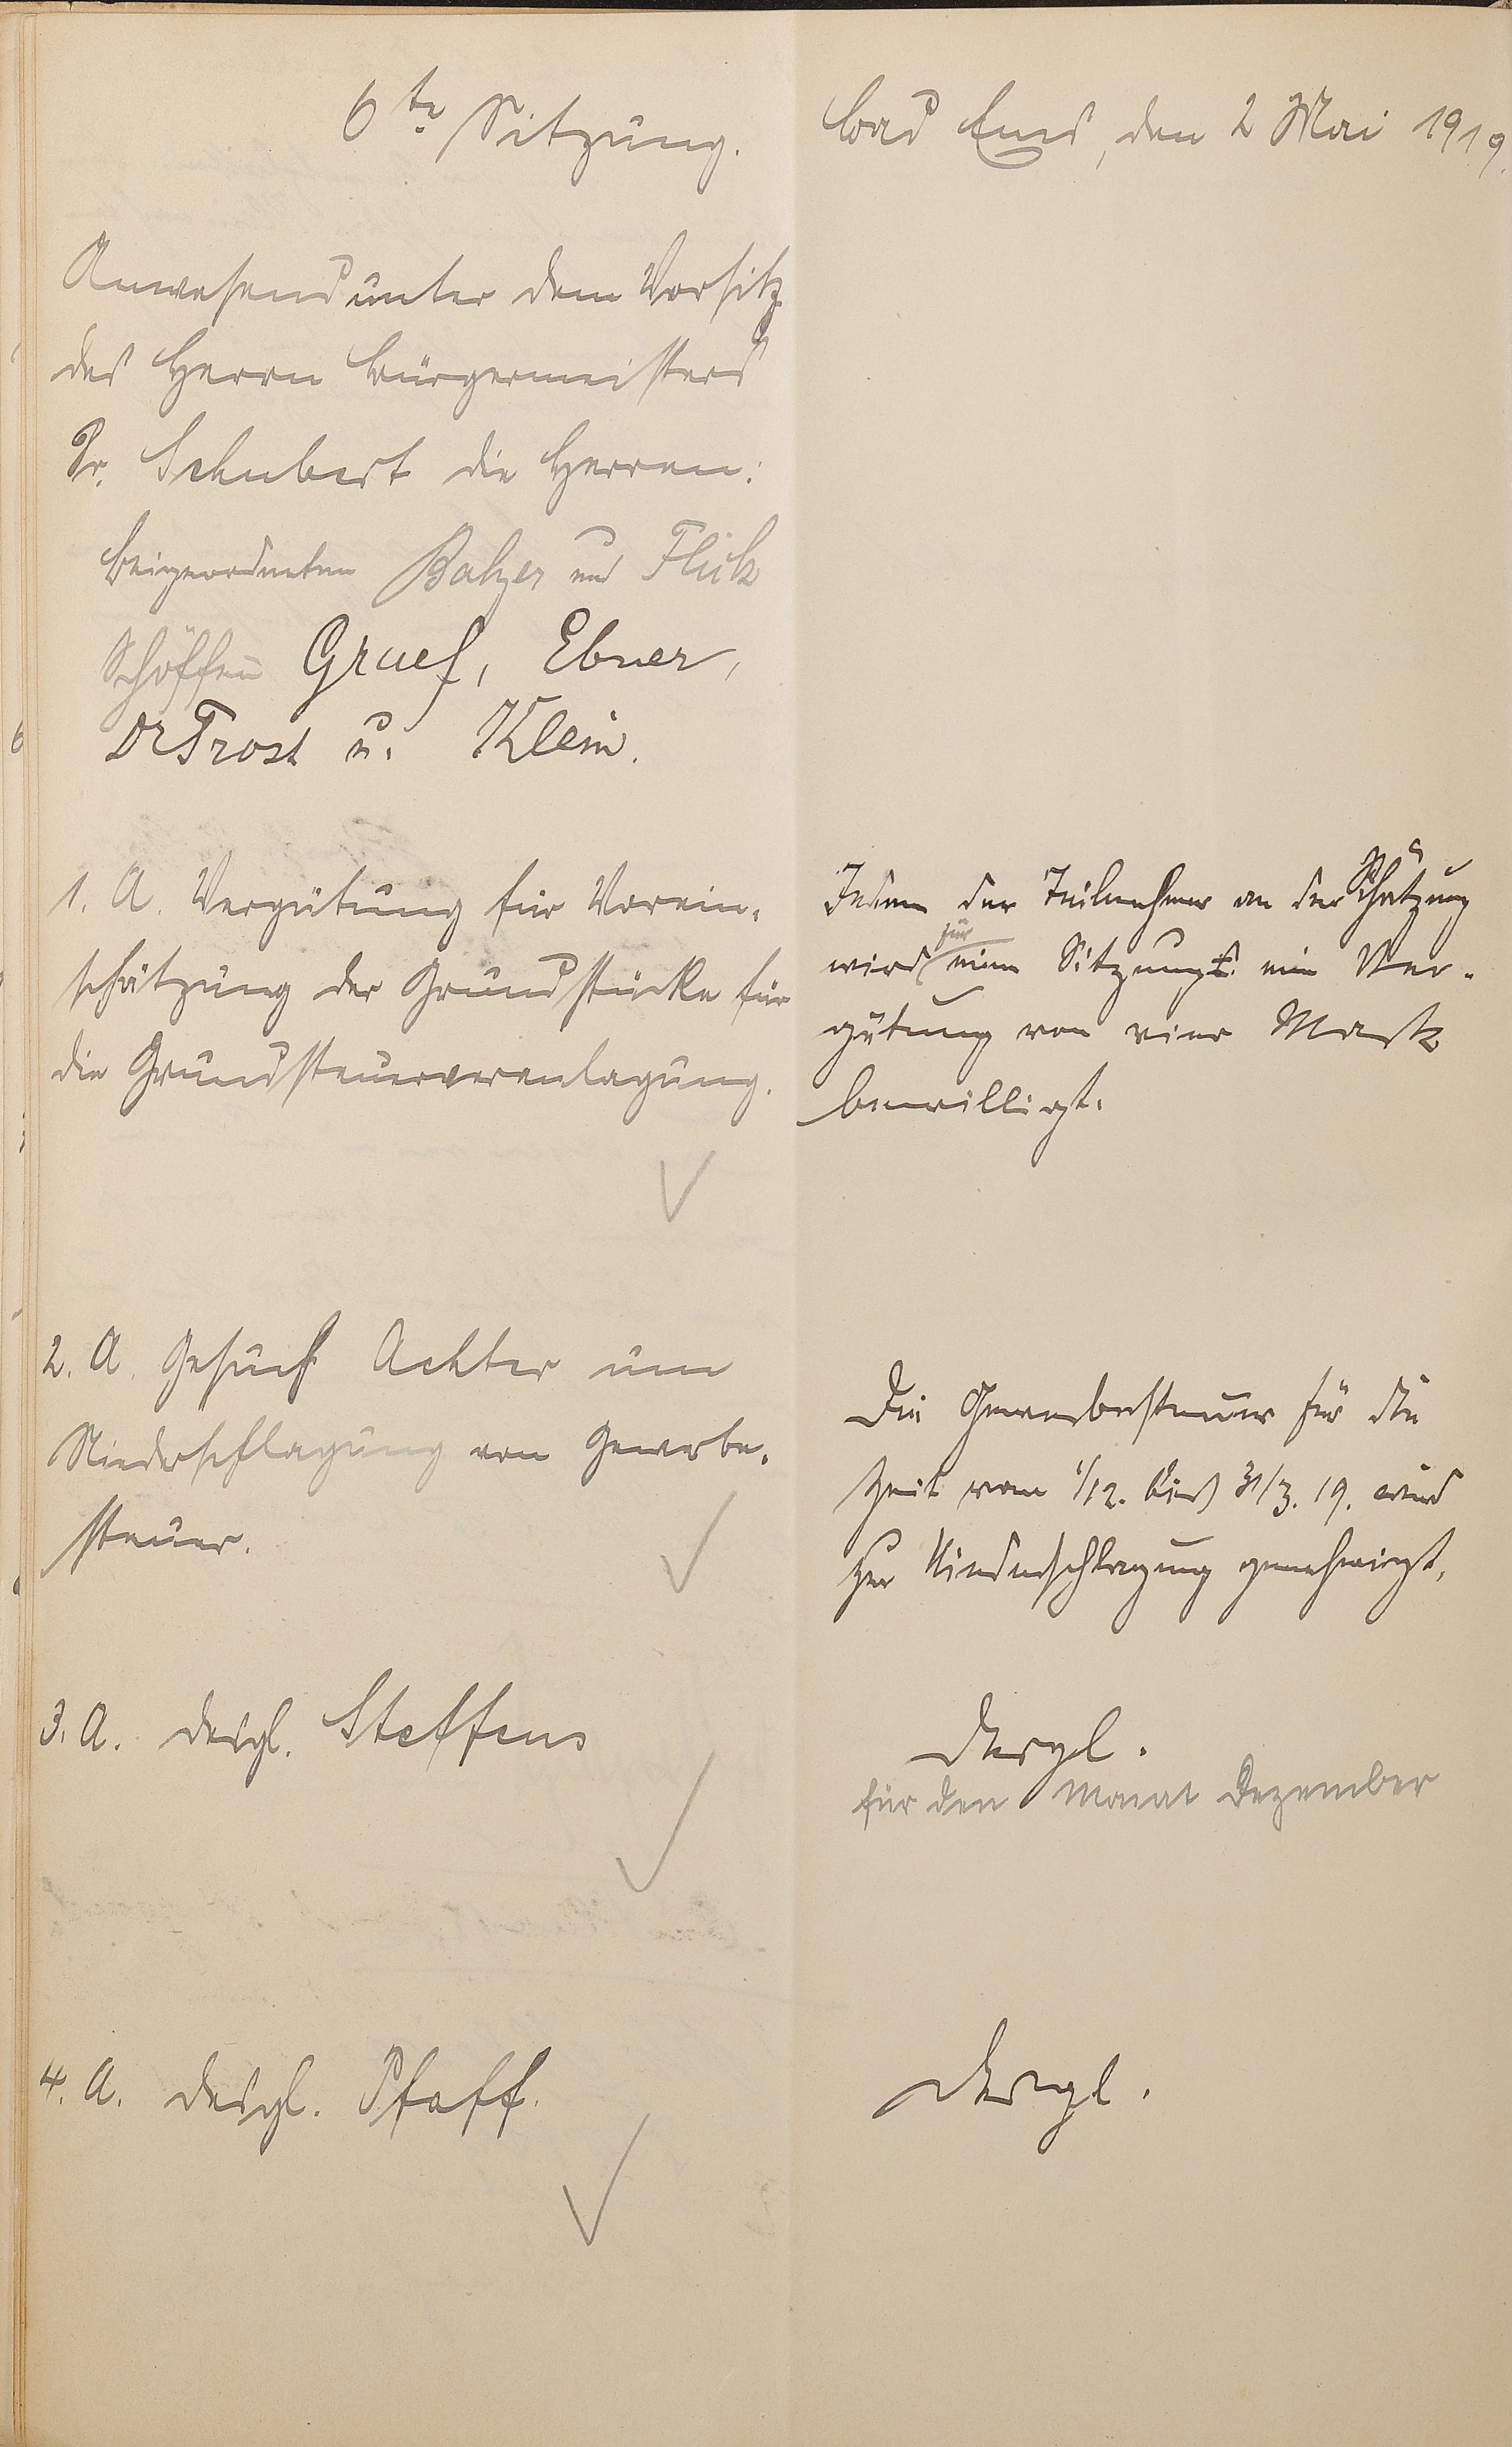 6te Sitzung.
Bad Ems, den 2 Mai 1919.
Anwesend unter dem Vorsitz
des Herrn Bürgermeisters
Dr. Schubert die Herren:
Beigeordneten Balzer und Flick
Schöffen Graef, Ebner,
Dr Frost u. Klein.
1. A. Vergütung für Vorein-
schätzung der Grundstücke für
die Grundsteuerveranlagung.
Jedem der Teilnehmer an der Schätzung
wird für eine Sitzung eine Ver-
gütung von vier Mark
bewilligt.
2. A. Gesuch Achter um
Niederschlagung von Gewerbe-
steuer.
Die Gewerbesteuer für die
Zeit vom 1/12. bis 31/3. 19. wird
zur Niederschlagung genehmigt.
3. A. desgl. Steffens
desgl.
für den Monat Dezember
4. A. desgl. Pfaff.
desgl.